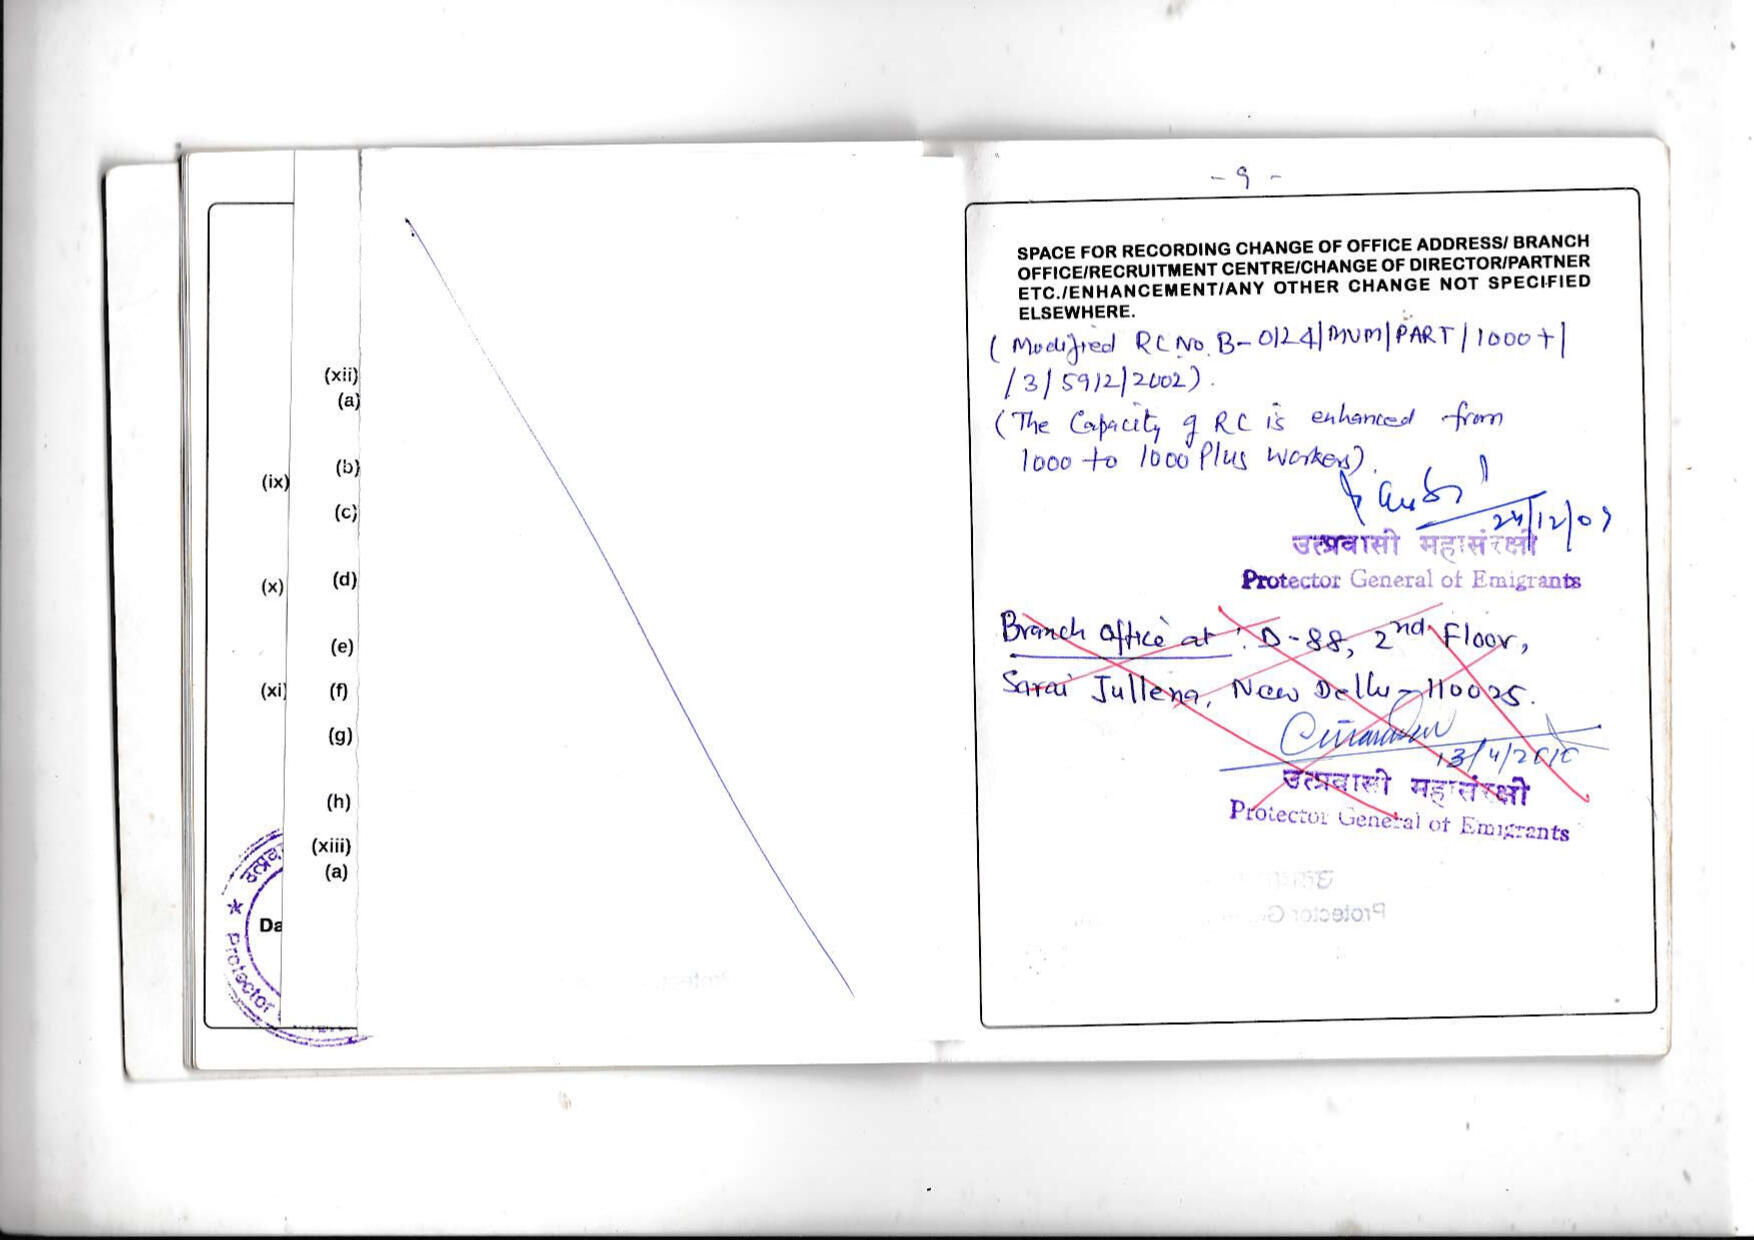 (xii)
(a)
(b)
(ix)
(c)
(d)
(x)
(e)
(xi)
(f)
(g)
(h)
(xiii)
(a)
Da
Protector
- 9 -
SPACE FOR RECORDING CHANGE OF OFFICE ADDRESS/ BRANCH
OFFICE/RECRUITMENT CENTRE/CHANGE OF DIRECTOR/PARTNER
ETC./ENHANCEMENT/ANY OTHER CHANGE NOT SPECIFIED
ELSEWHERE.
(Modified RC No. B-0124/MUM/PART/1000+/
/3/5912/2002).
(The Capacity of RC is enhanced from
1000 to 1000 Plus workers).
24/12/09
उत्प्रवासी महासंरक्षी
Protector General of Emigrants
Branch office at : D-88, 2nd Floor,
Sarai Jullena, New Delhi-110025.
13/4/2010
उत्प्रवासी महासंरक्षी
Protector General of Emigrants